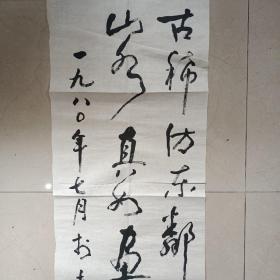 古稀访东邻
山水真如
一九八〇年七月于